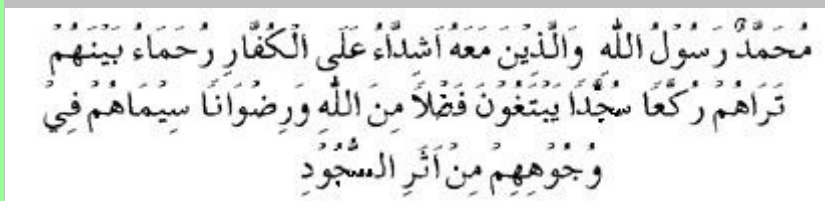 مُحَمَّدٌ رَسُوْلُ اللّٰهِ وَالَّذِيْنَ مَعَهُ اَشِدَّاءُ عَلَى الْكُفَّارِ رُحَمَاءُ بَيْنَهُمْ
تَرَاهُمْ رُكَّعًا سُجَّدًا يَبْتَغُوْنَ فَضْلاً مِنَ اللّٰهِ وَرِضْوَانًا سِيْمَاهُمْ فِيْ
وُجُوْهِهِمْ مِنْ اَثَرِ السُّجُوْدِ